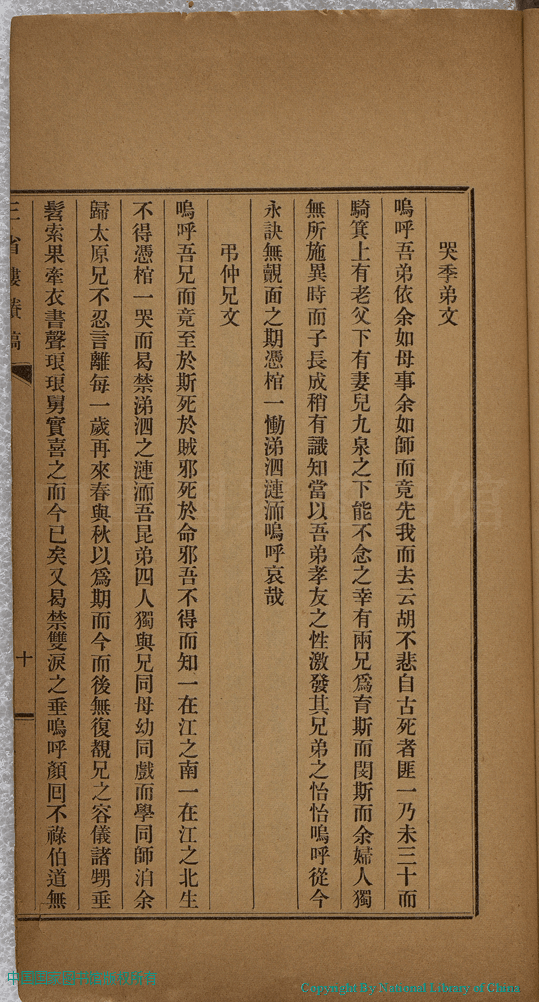 哭季弟文
嗚呼吾弟依余如母事余如師而竟先我而去云胡不悲自古死者匪一乃未三十而
騎箕上有老父下有妻兒九泉之下能不念之幸有兩兄爲育斯而閔斯而余婦人獨
無所施異時而子長成稍有識知當以吾弟孝友之性激發其兄弟之怡怡嗚呼從今
永訣無覿面之期憑棺一慟涕泗漣洏嗚呼哀哉
弔仲兄文
嗚呼吾兄而竟至於斯死於賊邪死於命邪吾不得而知一在江之南一在江之北生
不得憑棺一哭而曷禁涕泗之漣洏吾昆弟四人獨與兄同母幼同戲而學同師洎余
歸太原兄不忍言離每一歲再來春與秋以爲期而今而後無復覩兄之容儀諸甥垂
髫索果牽衣書聲琅琅舅實喜之而今已矣又曷禁雙淚之垂嗚呼顏回不祿伯道無
三省樓賸稿
十
中国国家图书馆版权所有
Copyright by National Library of China